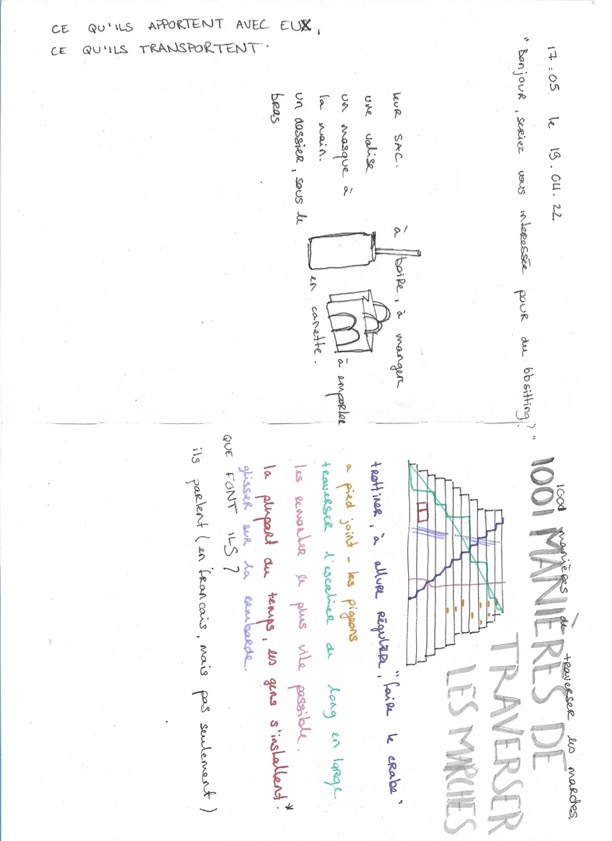 17:05 le 19.04.22
"Bonjour, seriez vous interessée pour du bbsitting?"
leur SAC.
une valise
un masque à
la main.
un dossier, sous le
bras
à boire, à manger
à emporter
en canette.
CE QU'ILS APPORTENT AVEC EUX,
CE QU'ILS TRANSPORTENT.
1001 manières de traverser les marches.
1001 MANIÈRES DE
TRAVERSER
LES MARCHES
trottiner, à allure régulièr, "faire le crabe"
a pied joint - les pigeons
traverser l'escalier de long en large
les remonter le plus vite possible.
la plupart du temps, les gens s'installent.*
glisser sur la rembarde.
QUE FONT ILS ?
ils parlent (en francais, mais pas seulement)